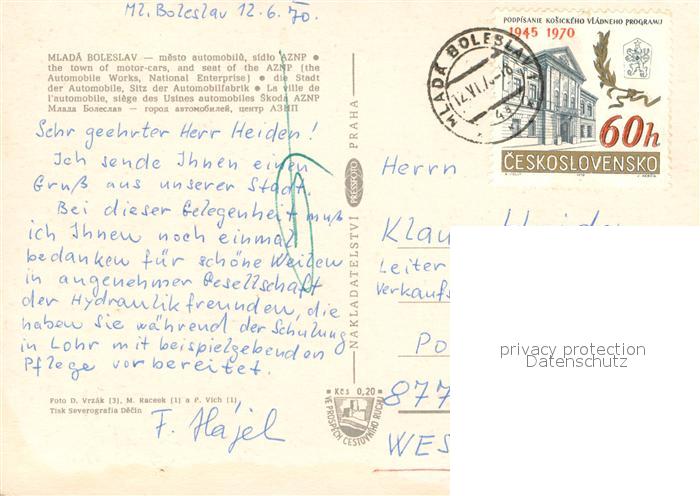 Ml. Boleslav 12.6.70.
MLADÁ BOLESLAV — město automobilů, sídlo AZNP ●
the town of motor-cars, and seat of the AZNP (the
Automobile Works, National Enterprise) ● die Stadt
der Automobile, Sitz der Automobilfabrik ● La ville de
l'automobile, siège des Usines automobiles Škoda AZNP
Млада Болеслав — город автомобилей, центр АЗНП
Sehr geehrter Herr Heiden!
Ich sende Ihnen einen
Gruß aus unserer Stadt.
Bei dieser Gelegenheit muß
ich Ihnen noch einmal
bedanken für schöne Weilen
in angenehmer Gesellschaft
der Hydraulikfreunden, die
haben Sie während der Schulung
in Lohr mit beispielgebenden
Pflege vorbereitet.
F. Hájel
Foto D. Vrzák (3), M. Raceek (1) a P. Vich (1)
Tisk Severografia Děčín
NAKLADATELSTVÍ PRESSFOTO PRAHA
Kčs 0,20
VE PROSPĚCH CESTOVNÍHO RUCHU
MLADÁ BOLESLAV 1
12.VI.7
PODPÍSANIE KOŠICKÉHO VLÁDNEHO PROGRAMU
1945 1970
60h
ČESKOSLOVENSKO
Herrn
Klau
Leiter
Verkaufs
Po
877
WES
privacy protection
Datenschutz